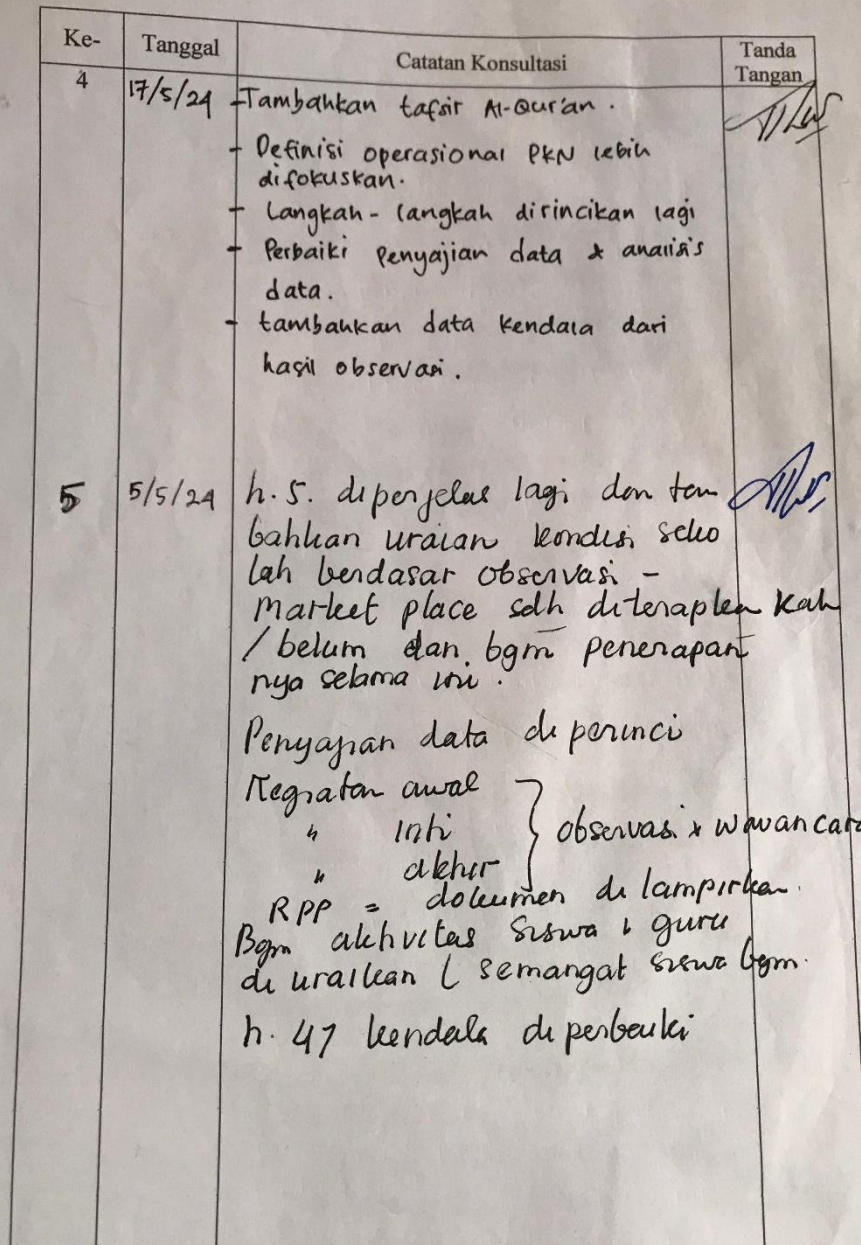 Ke- Tanggal Catatan Konsultasi Tanda Tangan
4 17/5/24 - Tambahkan tafsir Al-Qur'an.
- Definisi operasional PKN lebih
difokuskan.
- Langkah-langkah dirincikan lagi
- Perbaiki penyajian data & analisis
data.
- tambahkan data kendala dari
hasil observasi.
5 5/5/24 h.5. diperjelas lagi dan tam
bahkan uraian kondisi seko
lah berdasar observasi -
market place sdh diterapkan kah
/ belum dan bgm penerapan
nya selama ini.
Penyajian data diperinci
Kegiatan awal
" inti } observasi & wawancara
" akhir
RPP = dokumen dilampirkan.
Bgm aktivitas siswa & guru
diuraikan ( semangat siswa bgm.
h. 47 kendala diperbaiki